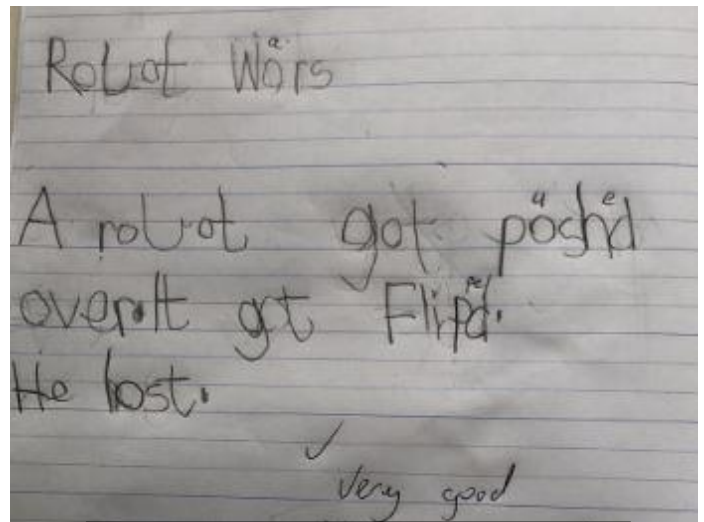 Robot Wors
A robot got poshd
over.It got Flipd.
He lost.
✓
Very good